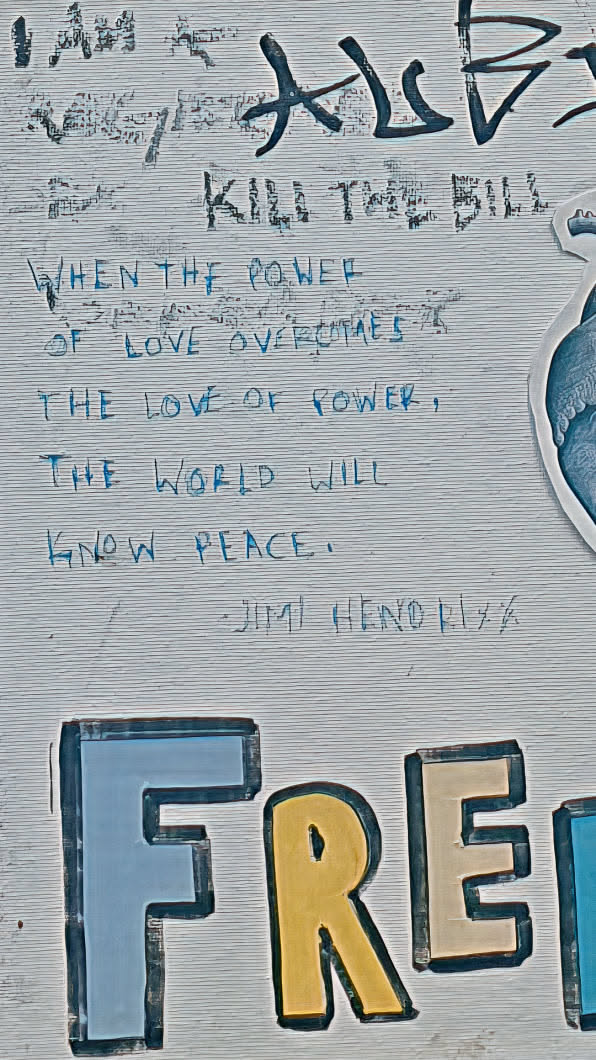 I AM A
KILL THE BILL
WHEN THE POWER
OF LOVE OVERCOMES
THE LOVE OF POWER,
THE WORLD WILL
KNOW PEACE.
-JIMI HENDRIXX
FRE